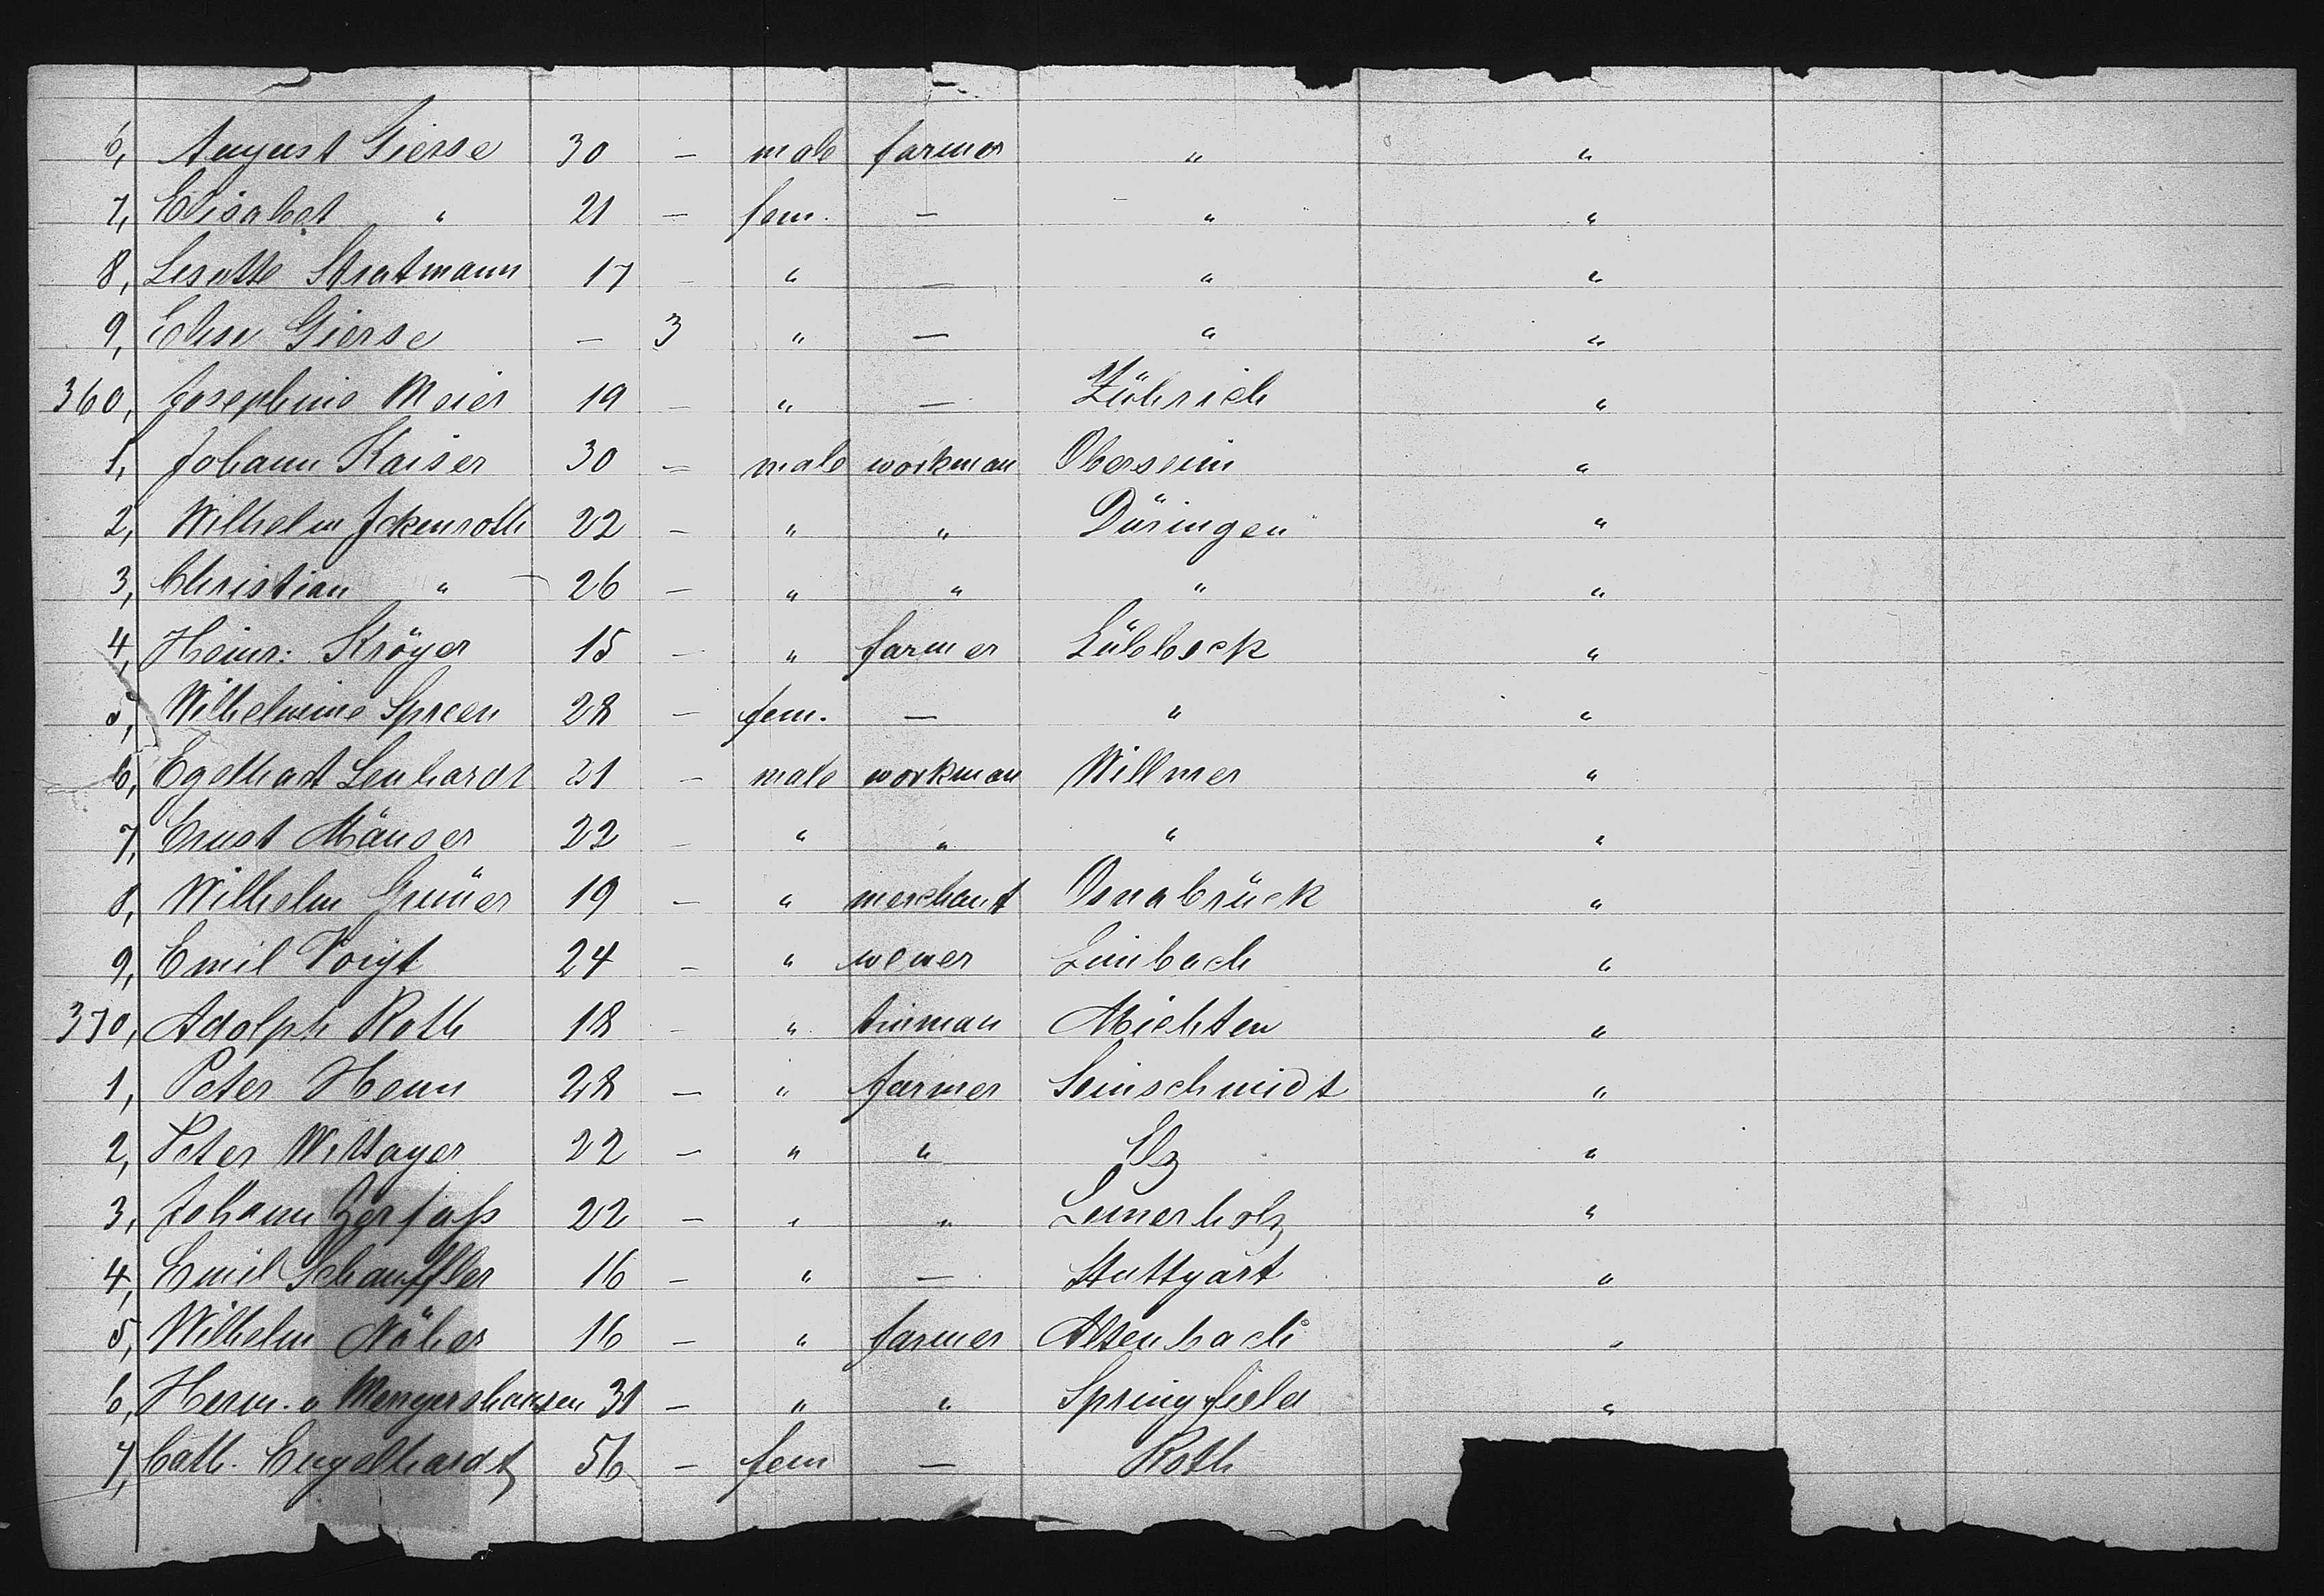 6, August Gierse 30 - male farmer " "
7, Elisabet " 21 - fem. - " "
8, Lisette Stratmann 17 - " - " "
9, Elise Gierse - 3 " - " "
360, Josephine Meier 19 - " - Zührich "
1, Johann Kaiser 30 - male workman "
2, Wilhelm Ickenroth 22 - " " Düringen "
3, Christian " 26 - " " " "
4, Heinr: Kröger 15 - " farmer Lübbeck "
5, Wilhelmine Spreen 28 - fem. - " "
6, Egelhart Lenhardt 21 - male workman Willmer "
7, Ernst Mänser 22 - " " " "
8, Wilhelm Grüner 19 - " merchant Osnabrück "
9, Emil Voigt 24 - " wewer Limbach "
370, Adolph Roth 18 - " tinman Michten "
1, Peter Henn 28 - " farmer Seinschmidt "
2, Peter Wittayer 22 - " " Elz "
3, Johann Zerfaß 22 - " " Leinerholz "
4, Emil Schauffler 16 - " - Stuttgart "
5, Wilhelm Näher 16 - " farmer Altenbach "
6, Herm. v Mengershausen 31 - " " Springfield "
7, Cath. Engelhardt 56 - fem - Roth